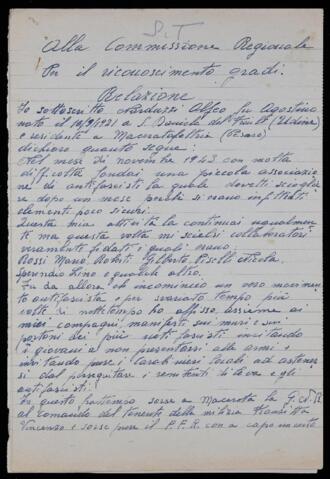 S.T
Alla Commissione Regionale
Per il riconoscimento gradi.
Relazione
Io sottoscritto Narduzzi Alfeo fu Agostino
nato il 14/9/1921 a S. Daniele del Friuli (Udine)
e residente a Macerata Feltria (Pesaro)
dichiaro quanto segue:
Nel mese di novembre 1943 con molta
difficoltà fondai una piccola associazio
ne di antifascisti la quale dovetti scioglie
re dopo un mese perché si erano infiltrati
elementi poco sicuri.
Questa mia attività la continuai ugualmen
te ma questa volta mi scielsi collaboratori
veramente fidati i quali erano:
Rossi Mario, Roberti Gilberto, Piselli Nicola,
Sprendio Lino e qualche altro.
Fu da allora che incominciò un vero movimen
to antifascista e per svariato tempo più
volte di nottetempo ho affisso assieme ai
miei compagni, manifesti sui muri e sui
portoni dei più noti fascisti invitando
i giovani a non presentarsi alle armi e
invitando pure i carabinieri locali ad astener
si dal perseguitare i renitenti di leva e gli
antifascisti.
In questo frattempo sorse a Macerata la G.N.R.
al comando del tenente della milizia
Vincenzo e sorse pure il P.F.R. con a capo